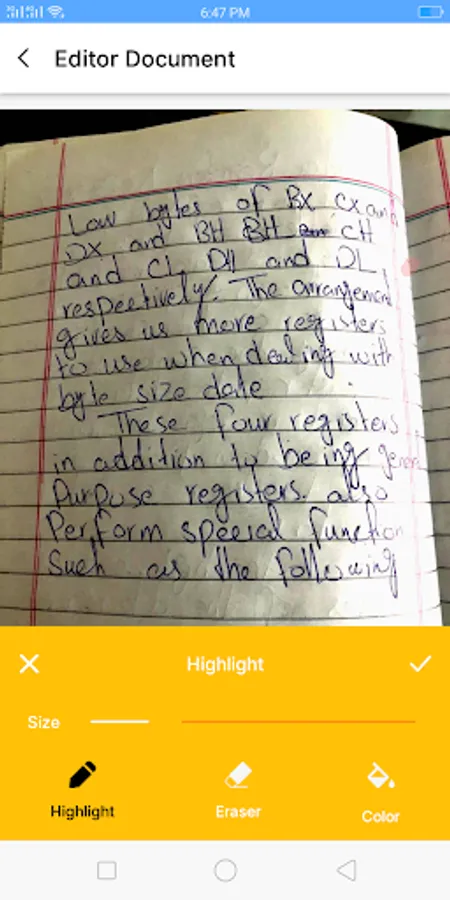 6:47 PM
Editor Document
Low bytes of BX CX and
DX and BH BH CH
and CL DH and DL,
respectively. The arrangement
gives us more registers
to use when dealing with
byte size date
These four registers
in addition to being gener
Purpose registers. also
Perform special function
Such as the following
Highlight
Size
Highlight
Eraser
Color